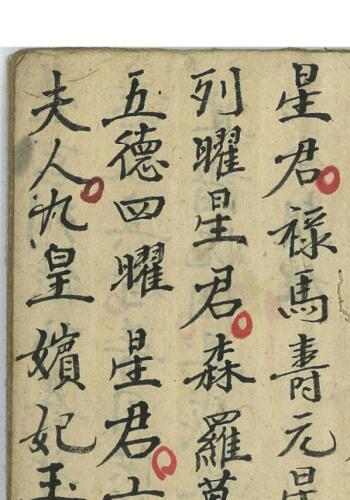 星君祿馬壽元星
列曜星君森羅萬
五德四曜星君六
夫人九皇嬪妃玉